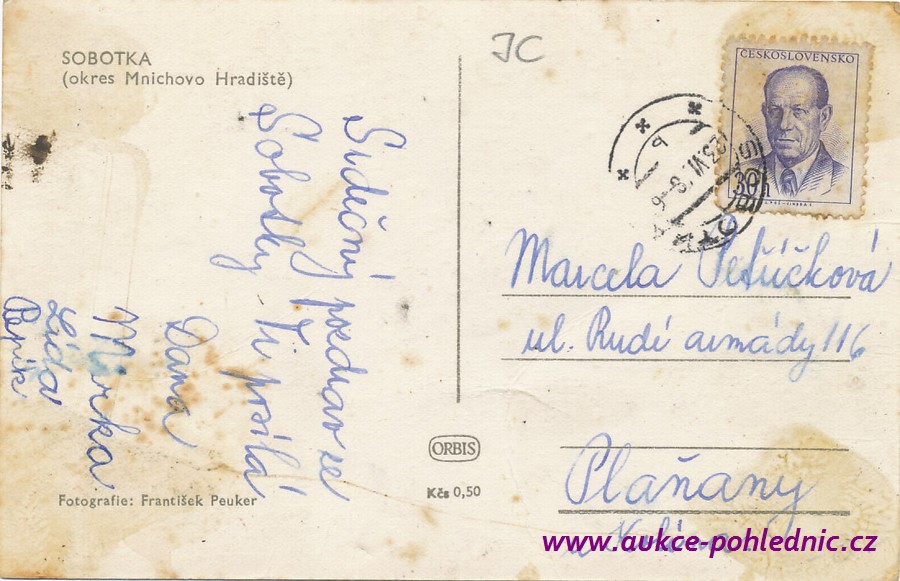 SOBOTKA
(okres Mnichovo Hradiště)
JC
ČESKOSLOVENSKO
30h
Srdečný pozdrav ze
Sobotky Ti posílá
Dana
Mirka
Lída
Pepík
Marcela
ul. Rudé armády 116
Plaňany
u Kolína
ORBIS
Kčs 0,50
Fotografie: František Peuker
www.aukce-pohlednic.cz